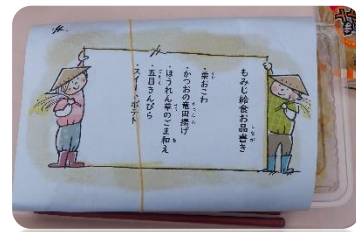 もみじ給食お品書き
・栗おこわ
・かつおの竜田揚げ
・ほうれん草のごま和え
・五目きんぴら
・スイートポテト